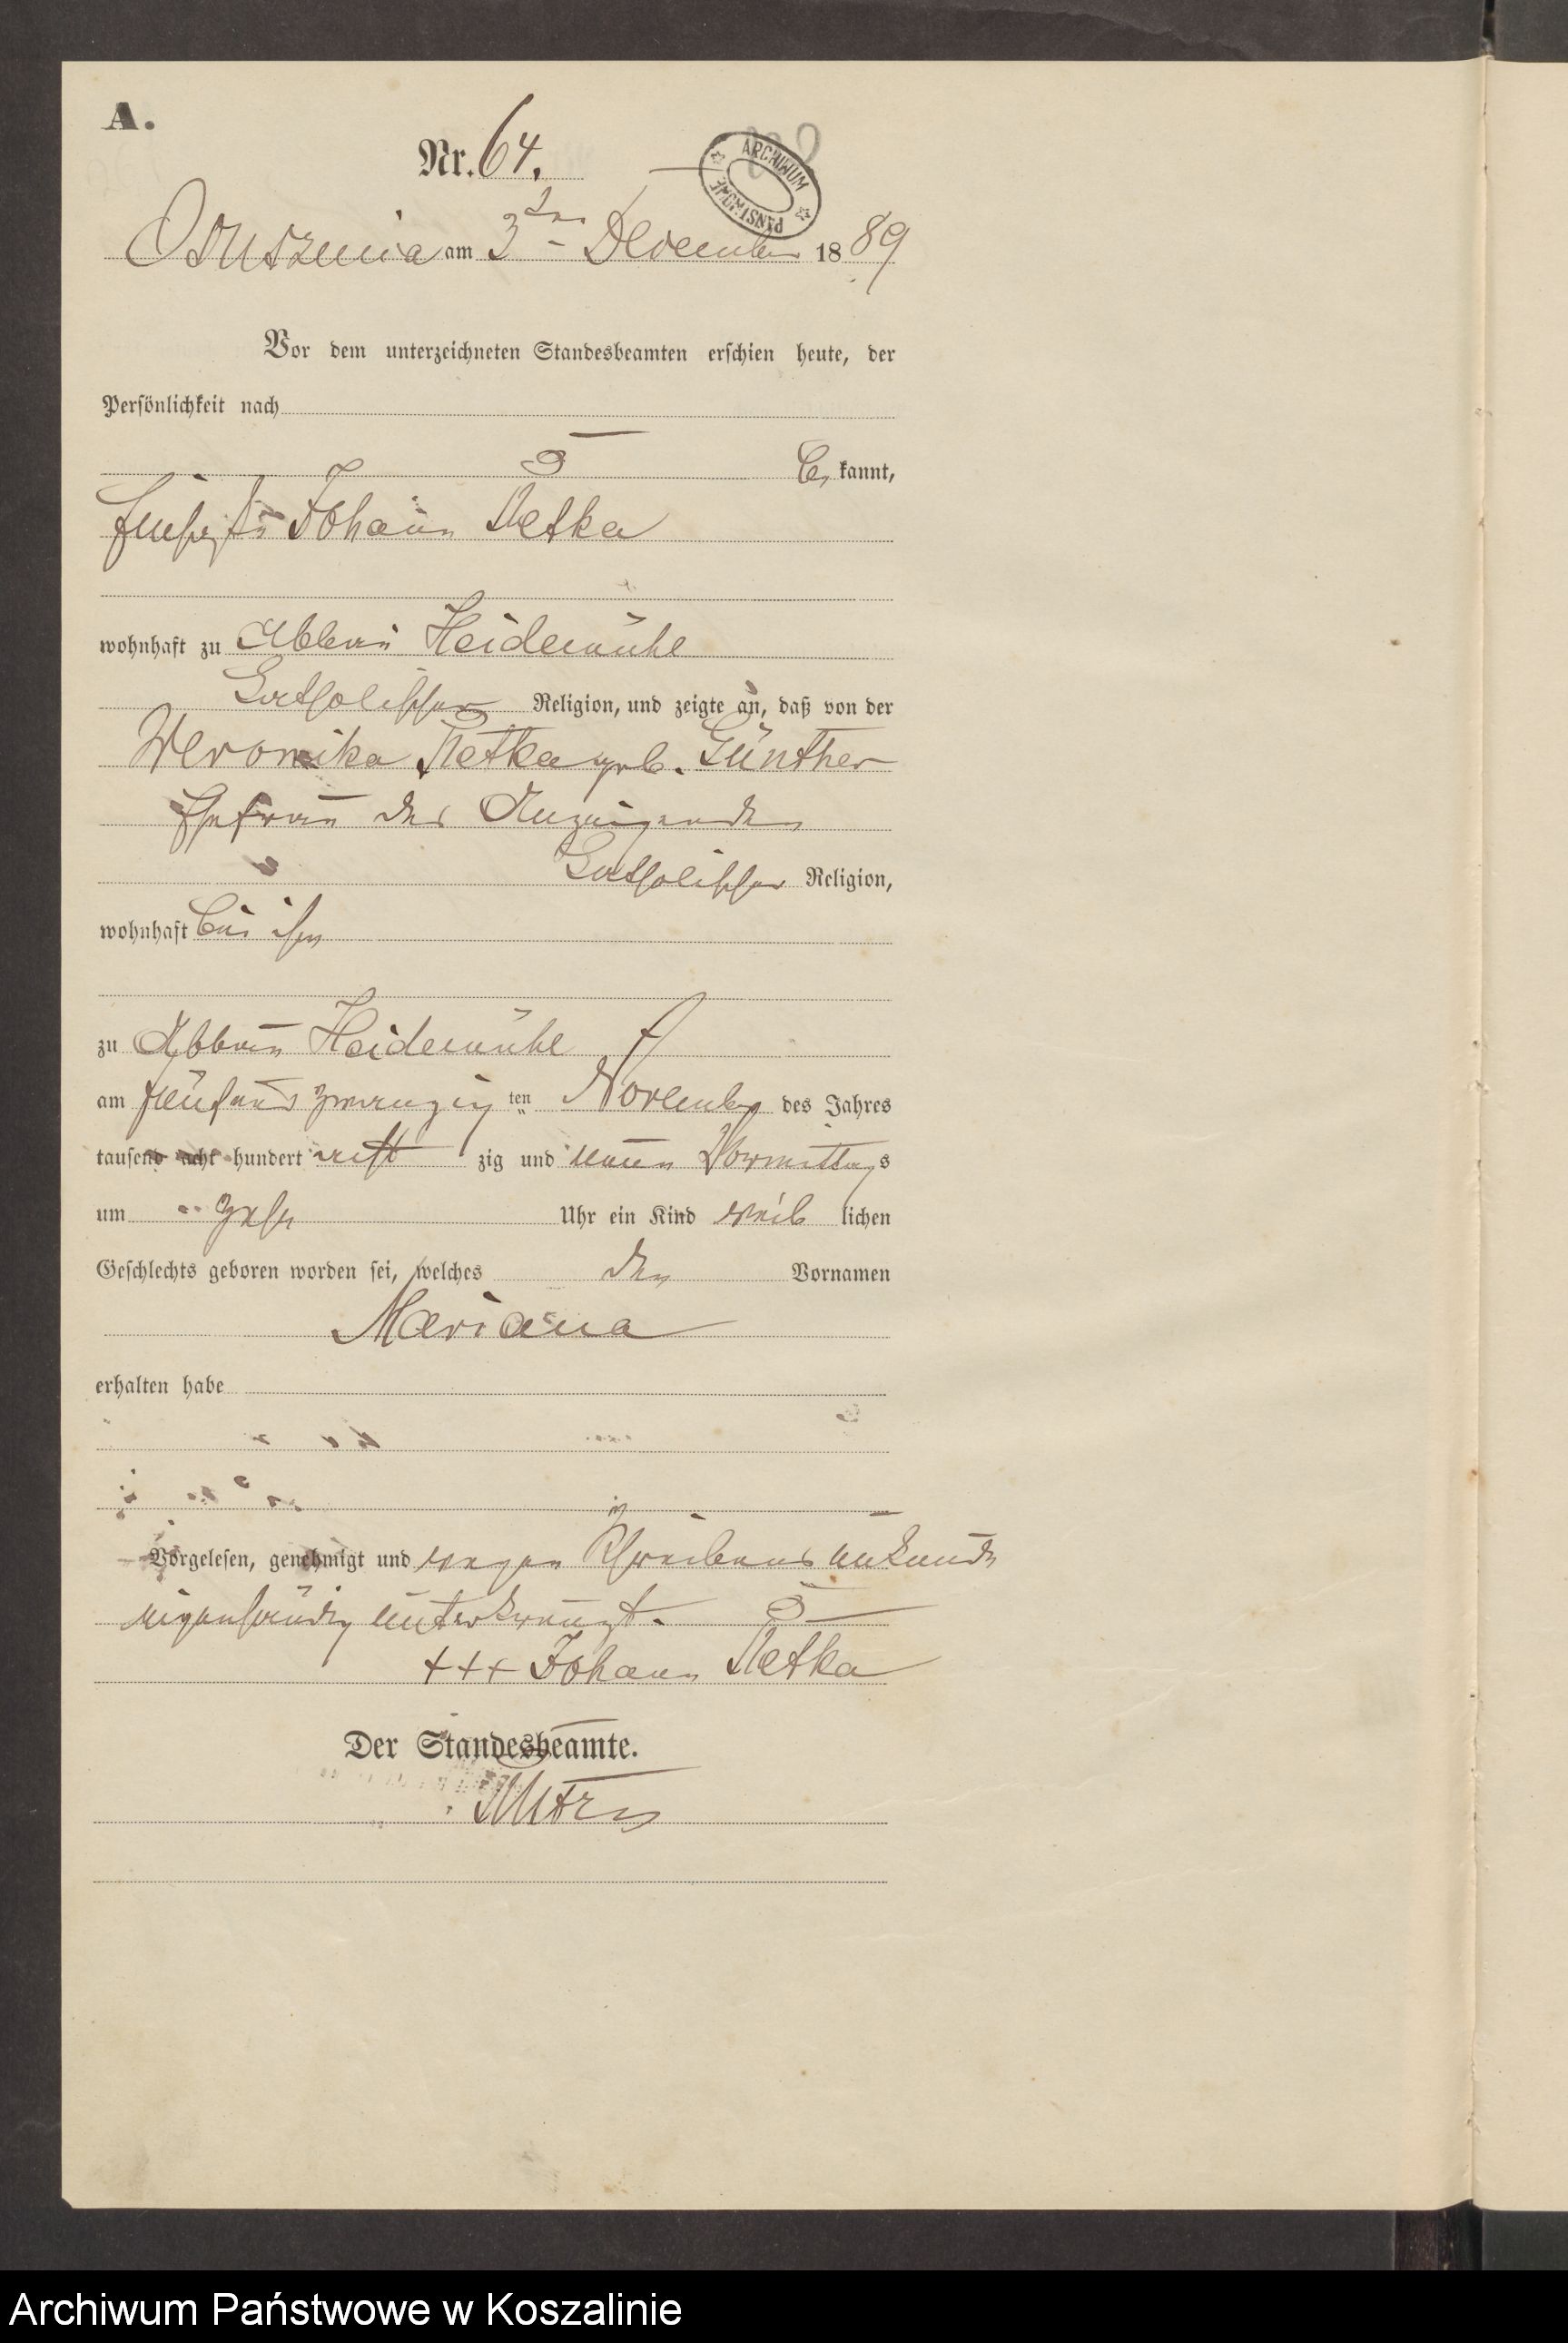 A.
Nr. 64.
ARCHIWUM PAŃSTWOWE
am 3ten December 1889
Vor dem unterzeichneten Standesbeamten erschien heute, der
Persönlichkeit nach
be kannt,
Johann Netka
wohnhaft zu Abbau Heidemühl
katholischer Religion, und zeigte an, daß von der
Weronika Netka geb. Günther
Ehefrau des Anzeigenden
katholischer Religion,
wohnhaft bei ihm
zu Abbau Heidemühl
am fünfundzwanzig ten November des Jahres
tausend acht hundert acht zig und neun Vormittags
um zehn Uhr ein Kind weib lichen
Geschlechts geboren worden sei, welches den Vornamen
Mariana
erhalten habe
Vorgelesen, genehmigt und wegen Schreibensunkunde
eigenhändig unterkreuzt.
+++ Johann Netka
Der Standesbeamte.
Archiwum Państwowe w Koszalinie